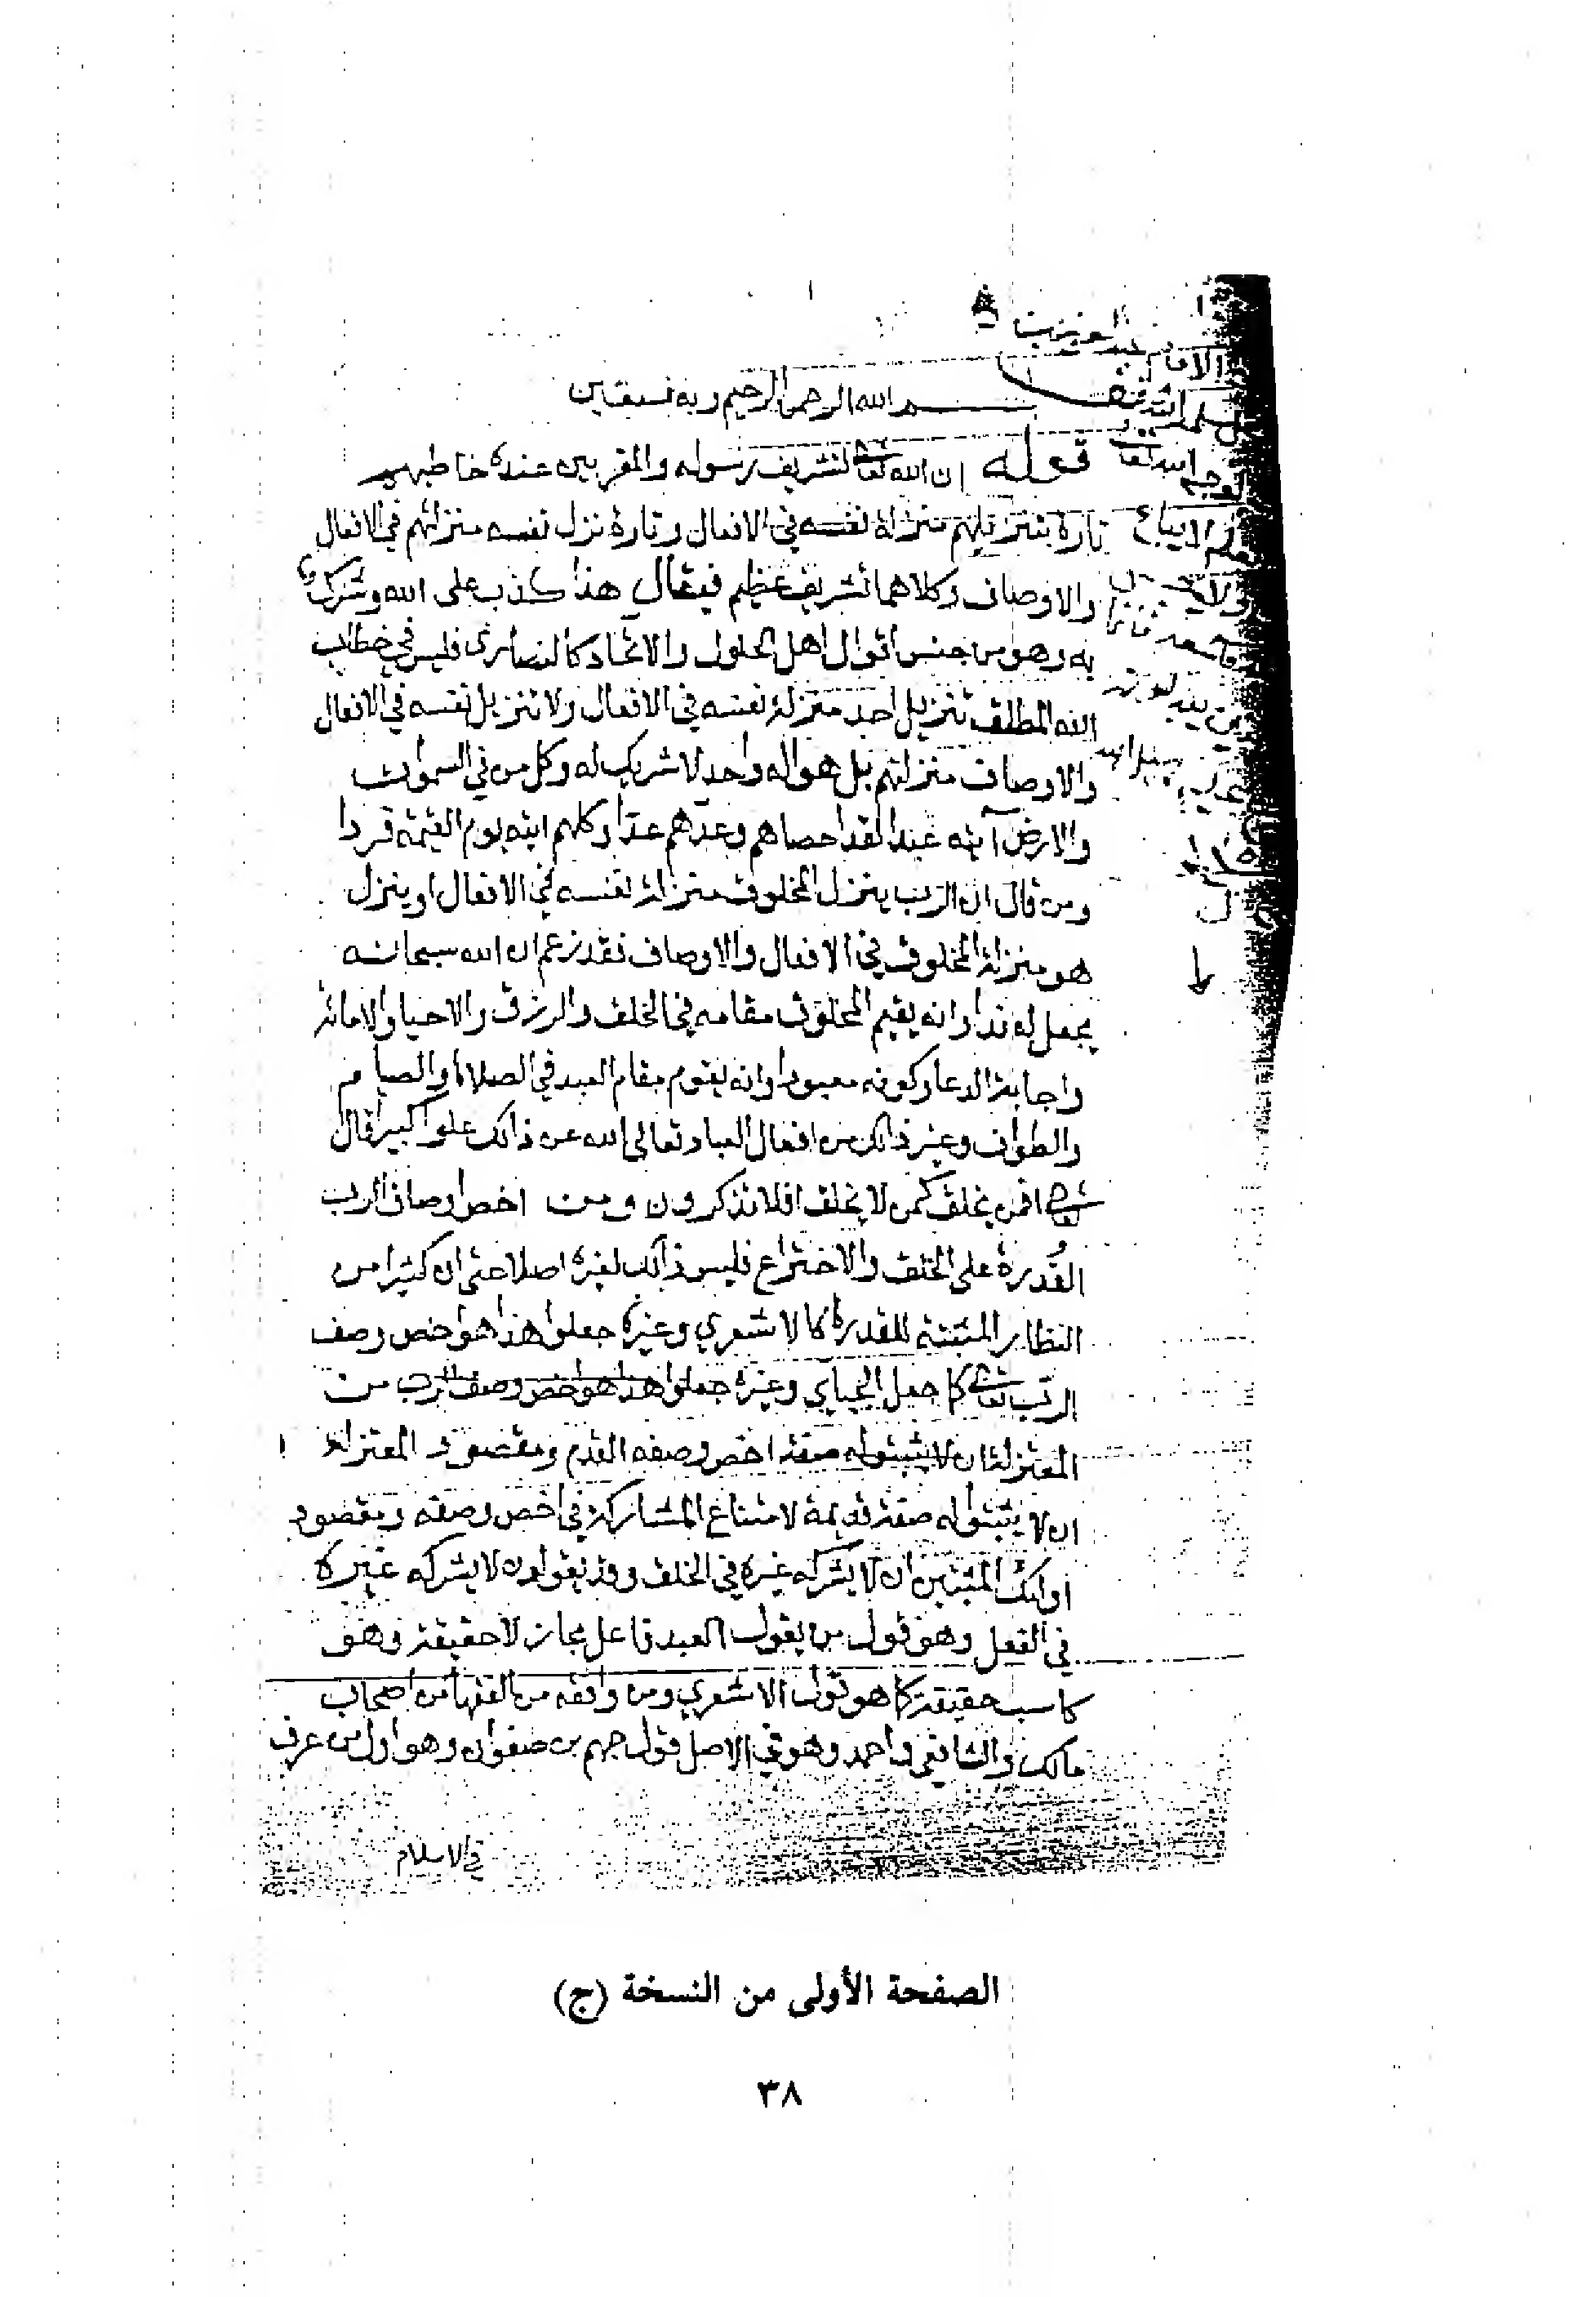 بسم الله الرحمن الرحيم وبه نستعين
قوله ان الله تعالى لتشريف رسوله والمقربين عنده خاطبهم
تارة بتنزيلهم منزلة نفسه في الافعال وتارة نزل نفسه منزلتهم في الافعال
والاوصاف وكلاهما تشريف عظيم فيقال هذا كذب على الله وشرك
به وهو من جنس اقوال اهل الحلول والاتحاد كالنصارى فليس في خطاب
الله المطلق تنزيل احد منزلة نفسه في الافعال ولا تنزيل نفسه في الافعال
والاوصاف منزلتهم بل هو اله واحد لا شريك له وكل من في السموات
والارض آتيه عبدا لقد احصاهم وعدّهم عدّا وكلهم اتيه يوم القيمة فردا
ومن قال ان الرب ينزل المخلوق منزلة نفسه في الافعال او ينزل
هو منزلة المخلوق في الافعال والاوصاف فقد زعم ان الله سبحانه
يجعل له ندا وانه يقيم المخلوق مقامه في الخلق والرزق والاحيا والاماتة
واجابة الدعا وكونه معبودا وانه يقوم مقام العبد في الصلاة والصيام
والطواف وغير ذالك من افعال العباد تعالى الله عن ذالك علوا كبيرا قال
تعالى افمن يخلق كمن لا يخلق افلا تذكرون ومن اخص اوصاف الرب
القُدرة على الخلق والاختراع فليس ذالك لغيره اصلا حتى ان كثيرا من
النظار المثبتة للقدرة كالاشعري وغيره جعلوا هذا هو اخص وصف
الرّب تعالى كما جعل الجبآي وغيره جعلوا هذا هو اخص وصف الرب من
المعتزلة ان لا يثبتوا له صفة اخص وصفه القدم ومقصود المعتزلة
ان لا يثبتوا له صفة قديمة لامتناع المشاركة في اخص وصفه ومقصود
اولئك المثبتين ان لا يشركه غيره في الخلق وقد يقولون لا يشركه غيره
في الفعل وهو قول من يقول العبد فاعل مجاز لا حقيقة وهو
كاسب حقيقة كما هو قول الاشعري ومن وافقه من الفقها من اصحاب
مالك والشافعي واحمد وهو في الاصل قول جهم بن صفوان وهو اول من عرف
في الاسلام
الصفحة الأولى من النسخة (ج)
٣٨